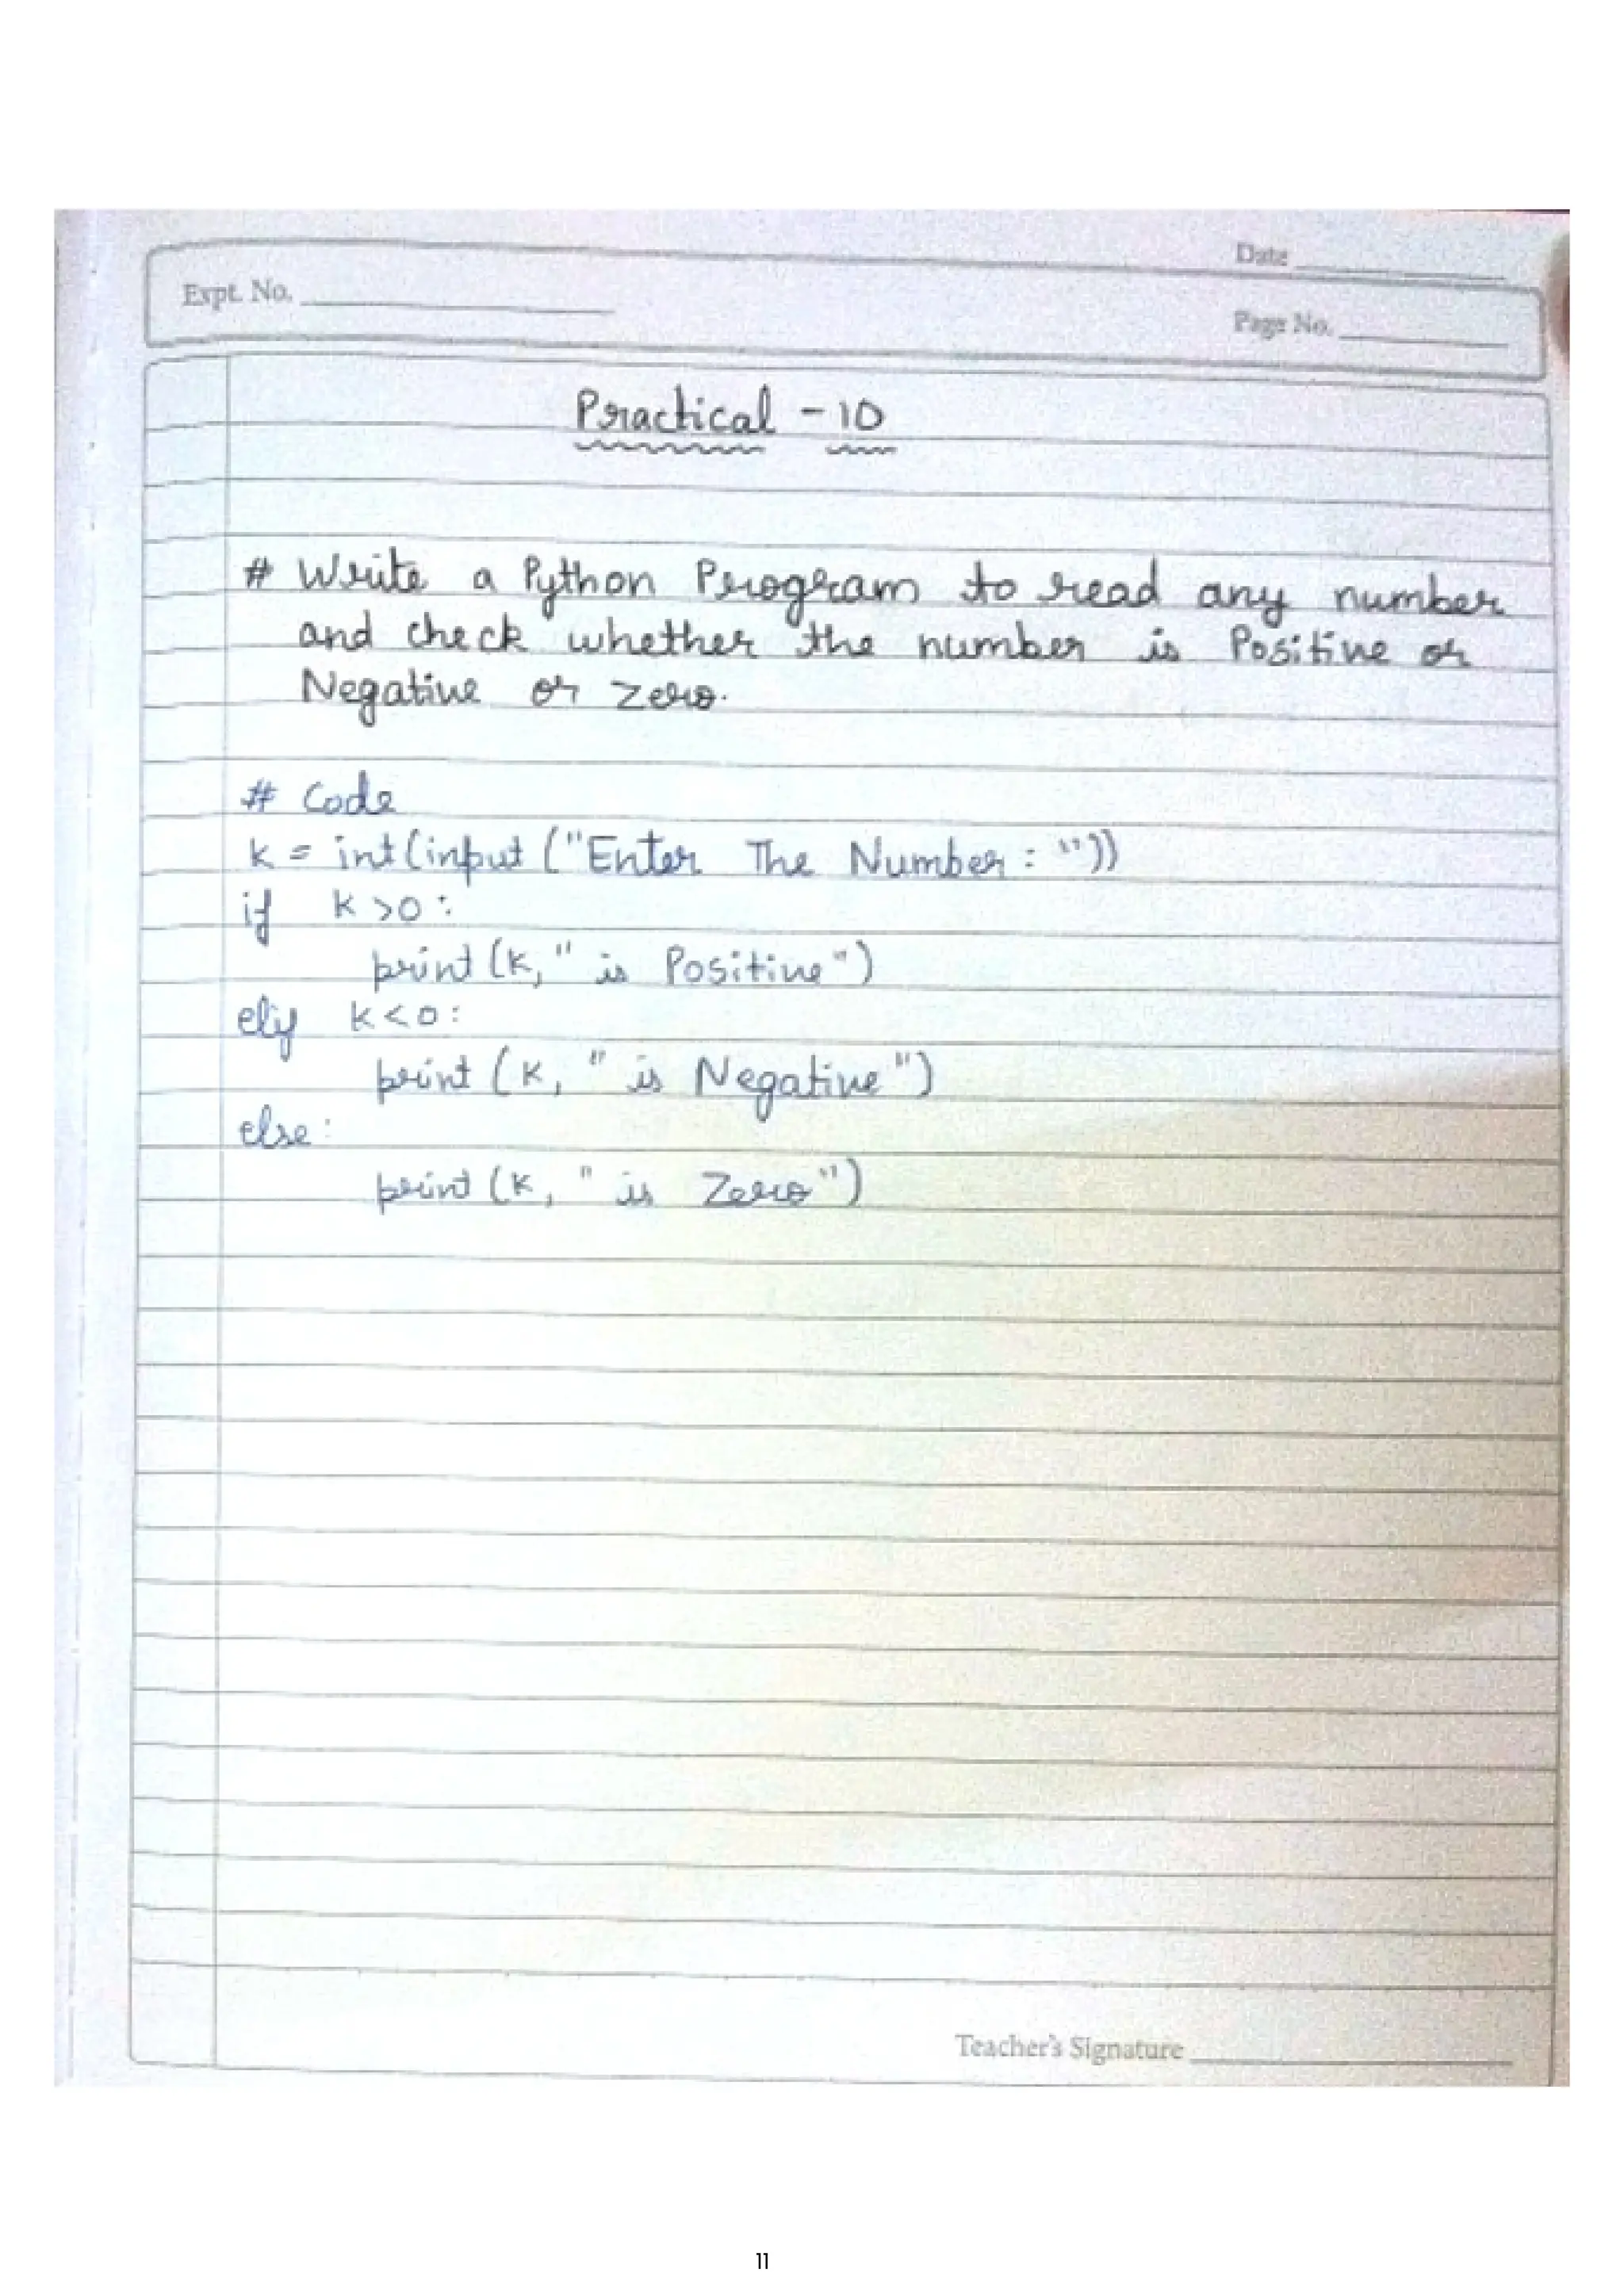 Date
Expt. No.
Page No.
Practical - 10
# Write a Python Program to read any number
and check whether the number is Positive or
Negative or Zero.
# Code
k = int(input ("Enter The Number : "))
if k >0 :
print (k, " is Positive")
elif k < 0 :
print (k, " is Negative")
else :
print (k, " is Zero")
Teacher's Signature
11